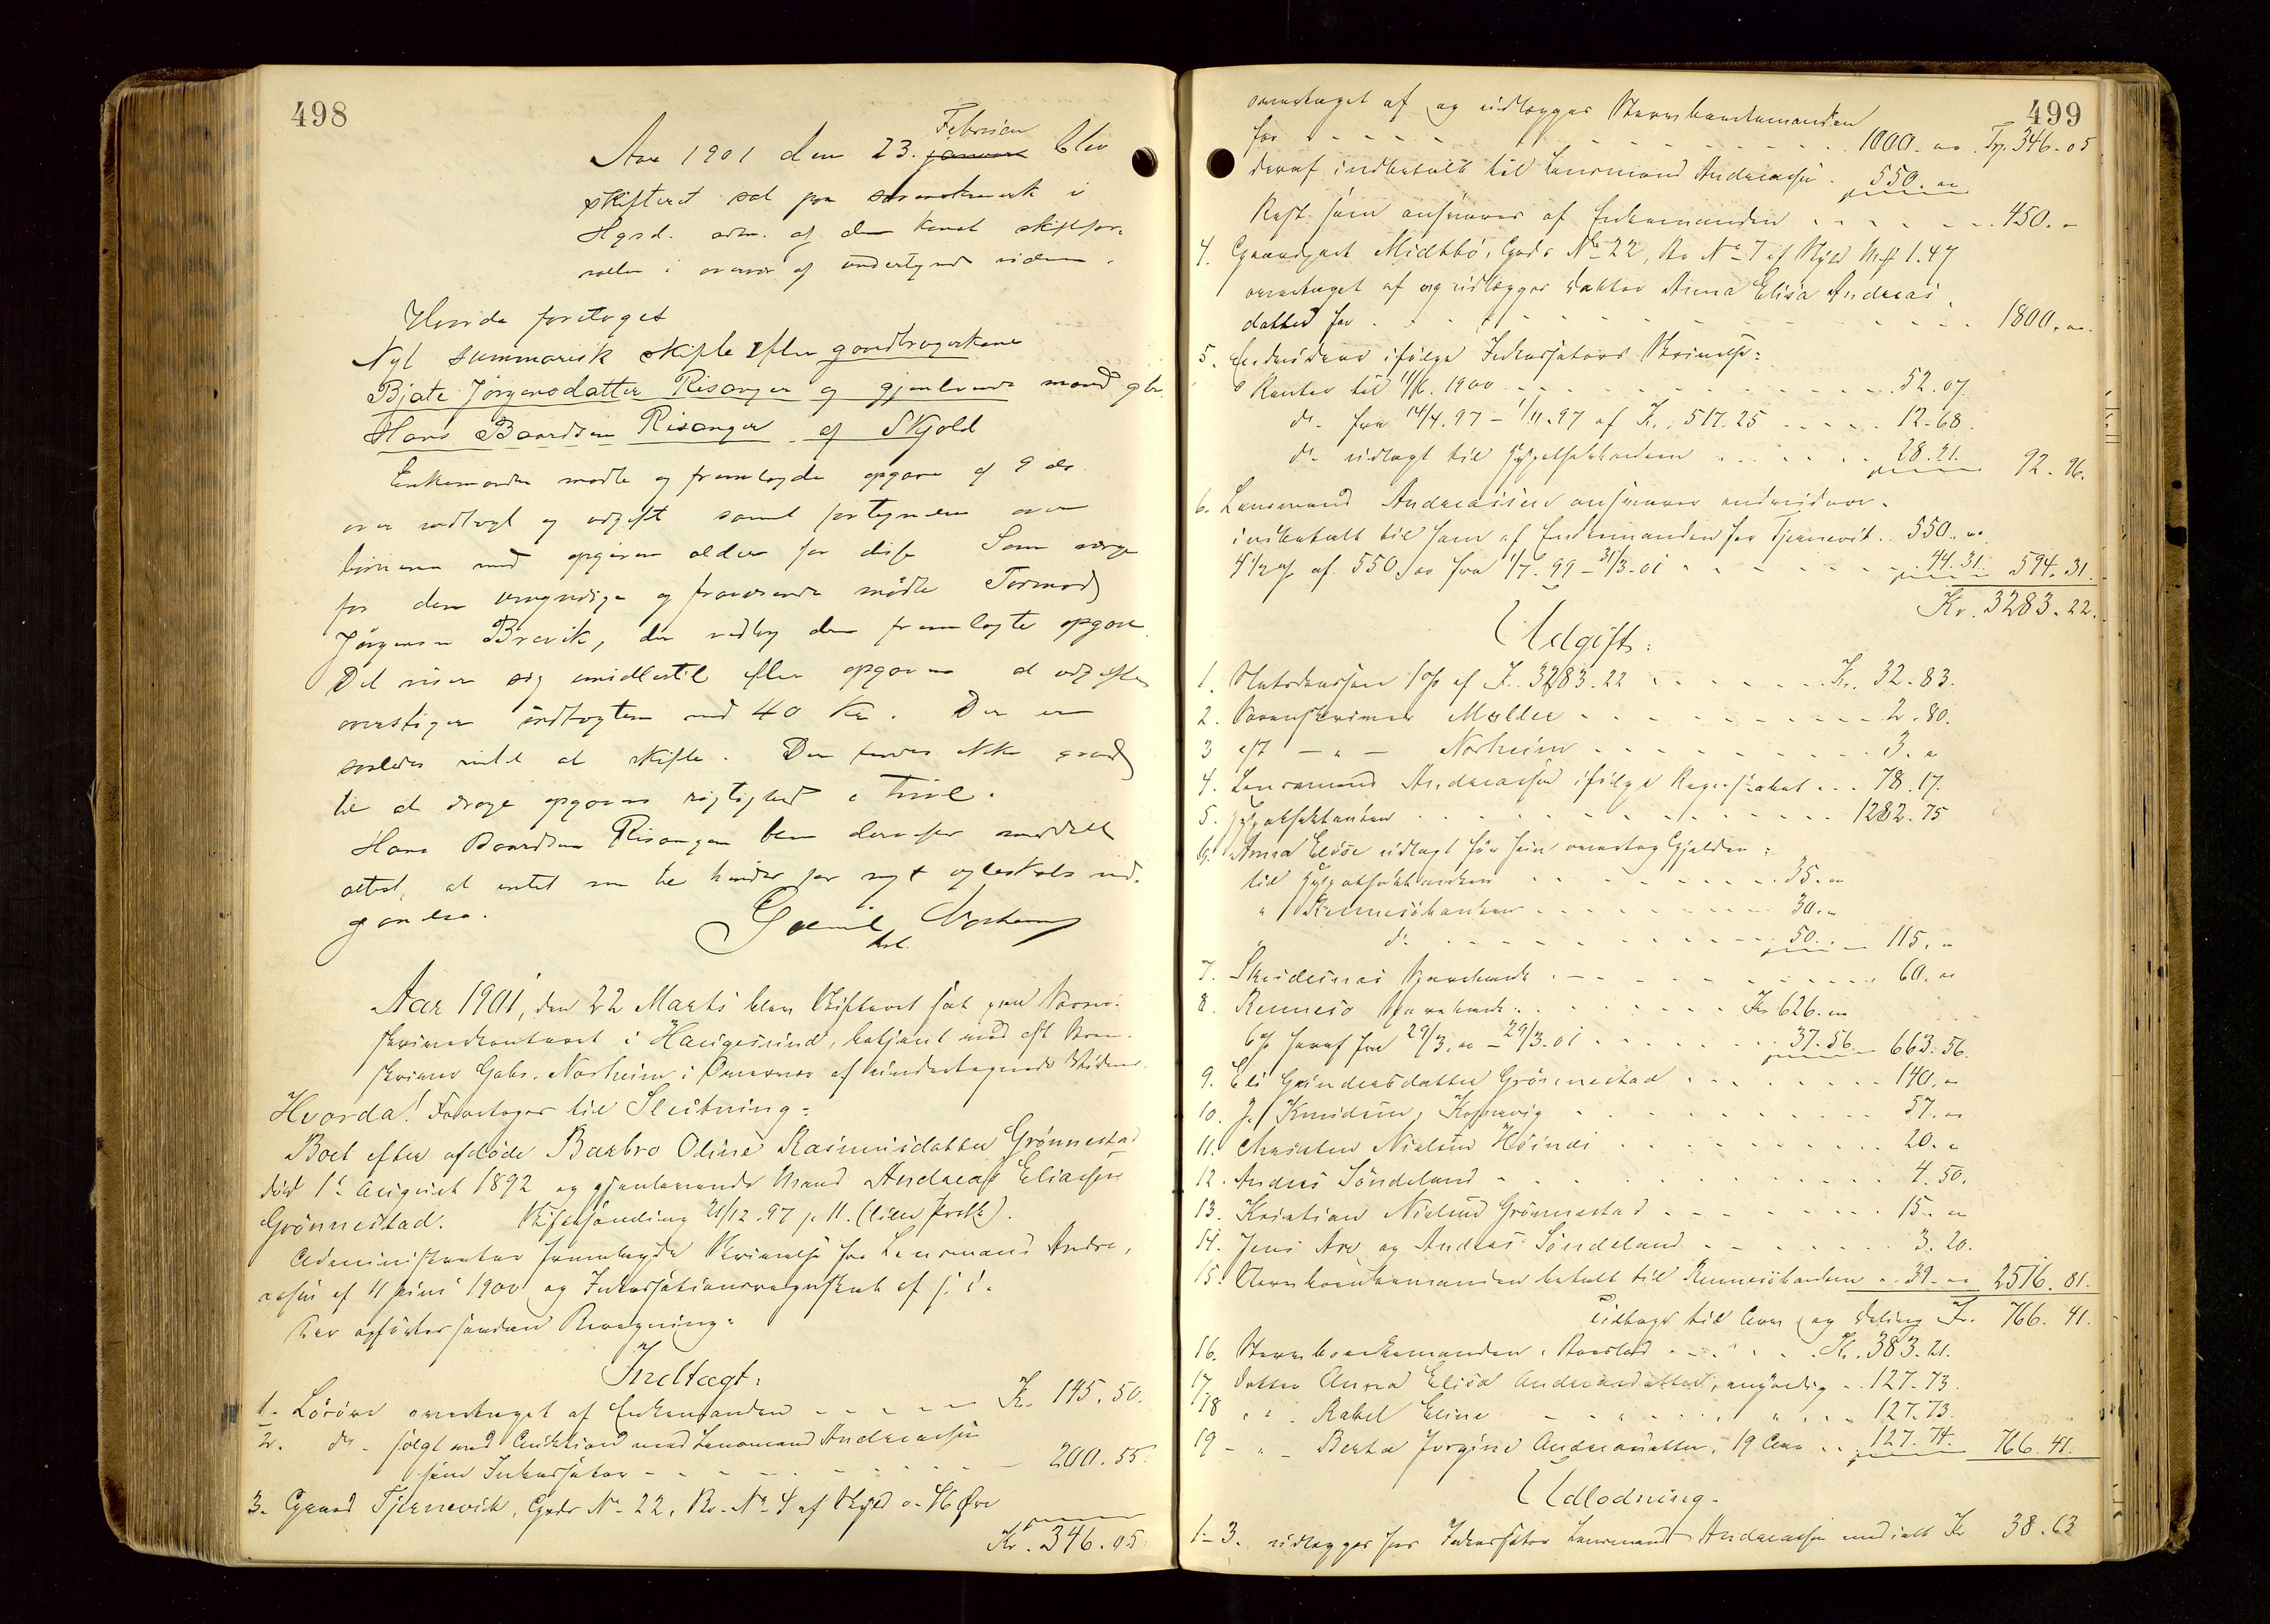 498
Aar 1901 den 23. Februar blev
skifteret sat paa sorenskriverk i
Hgsd. adm. af den konst skiftefor-
valter i overvær af undertegnede vidner.
Hvorda foretoges
Nyt summarisk skifte efter gaardbrugerkone
Bjate Jørgensdatter Risanger og gjenlevende mand gbr.
Hans Baardsen Risanger af Skjold
Enkemanden mødte og fremlagde opgave af 9 ds
over indtægt og udgift samt fortegnelse over
børnene med opgivne alder for disse Som verge
for den umyndige og fraværende mødte Tormod
Jørgensen Brevik, der vedtog den fremlagte opgave.
Det viser sig imidlertid efter opgaven at udgiften
overstiger indtægten med 40 Kr. Der er
saaledes intet at skifte. Der findes ikke grund
til at drage opgavens rigtighed i tvivl.
Hans Baardsen Risanger blev derefter meddelt
attest, at intet var til hinder for nyt ægteskabs ind-
gaaelse.
Gabriel Norheim
kst.
Aar 1901, den 22 Marts blev Skifteret sat paa Soren-
skriverkontoret i Haugesund, betjent med kst Soren-
skriver Gabr. Norheim i Overvær af undertegnede Vidner.
Hvorda! Foretoges til Slutning:
Boet efter afdøde Barbro Oline Rasmusdatter Grønnestad
død 1ste August 1892 og gjenlevende Mand Andreas Eliassen
Grønnestad. Skiftesamling 21/12.97 p. 11. (liden Protk).
Administrator fremlagde Skrivelse fra Lensmand Andre-
assen af 11 Juni 1900 og Inkassationsregnskab af s. d.
Der opførtes saadan Beregning:
Indtægt:
1. Løsøre overtaget af Enkemanden - - - - - Kr. 145.50.
2. do. solgt ved Auktion ved Lensmand Andreassen
som Inkassator - - - - - - - - - 200.55.
3. Gaard Tjernevik, Gards No. 22, Br. No. 4 af Skyld 0.46 Øre
Kr. 346.05
499
overtaget af og udlægges Stervboenkemanden
for - - - - - - - - - - - 1000.00 Trp. 346.05
deraf indbetalt til Lensmand Andreassen - 550.00
Rest som ansvares af Enkemanden - - - - - 450.-
4. Gaardpart Midtbø, Gards No. 22, Br No. 7 af Skyld M# 1.47
overtaget af og udlægges Datter Anna Elisa Andreas-
datter for - - - - - - - - - - - 1800.00.
5. Endvidere ifølge Inkassators Skrivelse:
Renter til 11/6. 1900 - - - - - - - - 52.07.
do. fra 14/4.97 - 1/11.97 af Kr. 517.25 - - - - - 12.68.
do. udlagt til Hypothekbanken - - - - - - 28.21. 92.96.
6. Lensmand Andreassen ansvarer endvidere
indbetalt til ham af Enkemanden for Tjernevik. 550.00
4 1/2 % af 550.00 fra 1/7.99 - 31/3.01 - - - - - - 44.31. 594.31.
Kr. 3283.22.
Udgift:
1. Statskassen 1% af Kr. 3283.22 - - - - - - Kr. 32.83.
2. Sorenskriver Møller - - - - - - - - - - 2.80.
3 kst - " - Norheim - - - - - - - - - 3. "
4. Lensmand Andreassen ifølge Regnskabet - - - 78.17.
5. Hypothekbanken - - - - - - - - - - 1282.75
6. Anna Elise udlagt før hun overtog Gjælden:
til Hypothekbanken - - - - - - - 35.00
" Rennesøbanken - - - - - - - 30.00
" do. - - - - - - - - - 50. - 115. "
7. Skudesnæs Sparebank - - - - - - - - - 60.00
8. Rennesø Sparebank - - - - - - Kr. 626.00
6% heraf fra 29/3.00 - 29/3.01 - - - - - 37.56 663.56.
9. Eli Gundersdatter Grønnestad - - - - - - - 140.00
10. J. Knudsen, Kopervig - - - - - - - - 57.00
11. Christen Nielsen - - - - - - - 20. "
12. Andreas Søndeland - - - - - - - - - 4.50.
13. Kristian Nielsen Grønnestad - - - - - - 15.00
14. Jens Are og Andreas Søndeland - - - - - - 3.20.
15. Stervboenkemanden betalt til Rennesøbanken - 39.00 2516.81.
Udlagt til Arv og Deling Kr. 766.41.
16. Stervboenkemanden, Boeslod - - - - - Kr. 383.21.
17 Datter Anna Elisa Andreasdatter, myndig - - 127.73.
18 " " - Rakel Eline - " - - - " - - - 127.73.
19 - " - Berta Jorgine Andreasdatter, 19 Aar - - 127.74. 766.41.
Udlodning.
1-3. udlægges hos Inkassator Lensmand Andreassen med ialt Kr 38.63